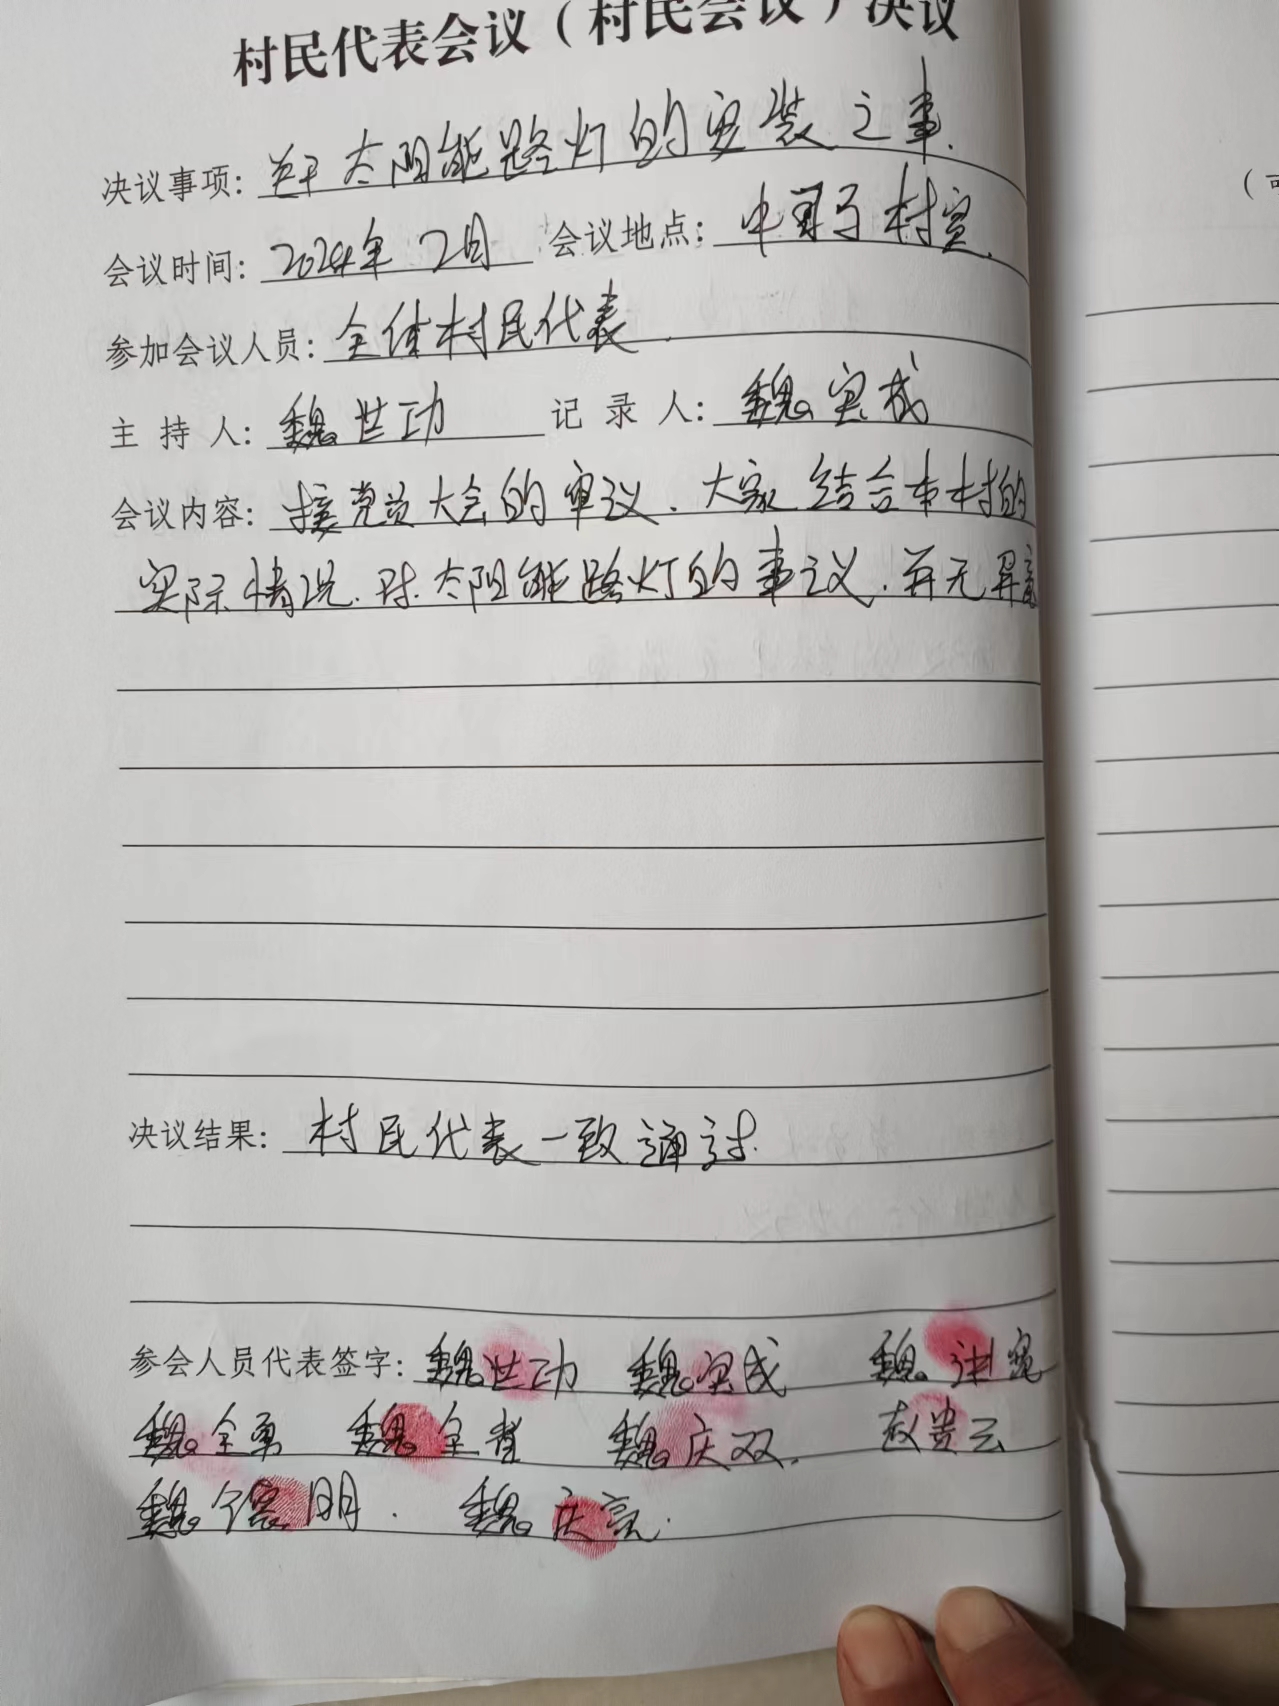 村民代表会议（村民会议）决议
决议事项：关于太阳能路灯的安装之事.
会议时间：2024年2月 会议地点：中 村室.
参加会议人员：全体村民代表.
主持人：魏世功 记录人：魏宝成
会议内容：接党员大会的审议.大家结合本村的
实际情况.对太阳能路灯的事议.并无异意
决议结果：村民代表一致通过.
参会人员代表签字：魏世功 魏宝成 魏
魏全勇 魏全 魏庆双. 赵贵云
魏 明. 魏庆亮.
（可